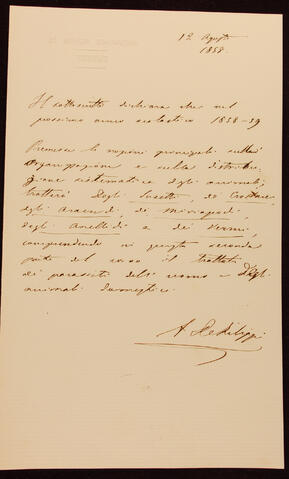 12 Agosto
1858.
Il sottoscritto dichiara che nel
prossimo anno scolastico 1858-59
Premesse le nozioni principali sulla
organizzazione e sulla distribu-
zione sistematica degli animali,
tratterà degli Insetti, dei Crostacei,
degli Aracnidi, dei Miriapodi,
degli Anellidi e dei Vermi,
comprendendo in questa seconda
parte del corso il trattato
dei parassiti dell'uomo e degli
animali domestici.
F. De Filippi